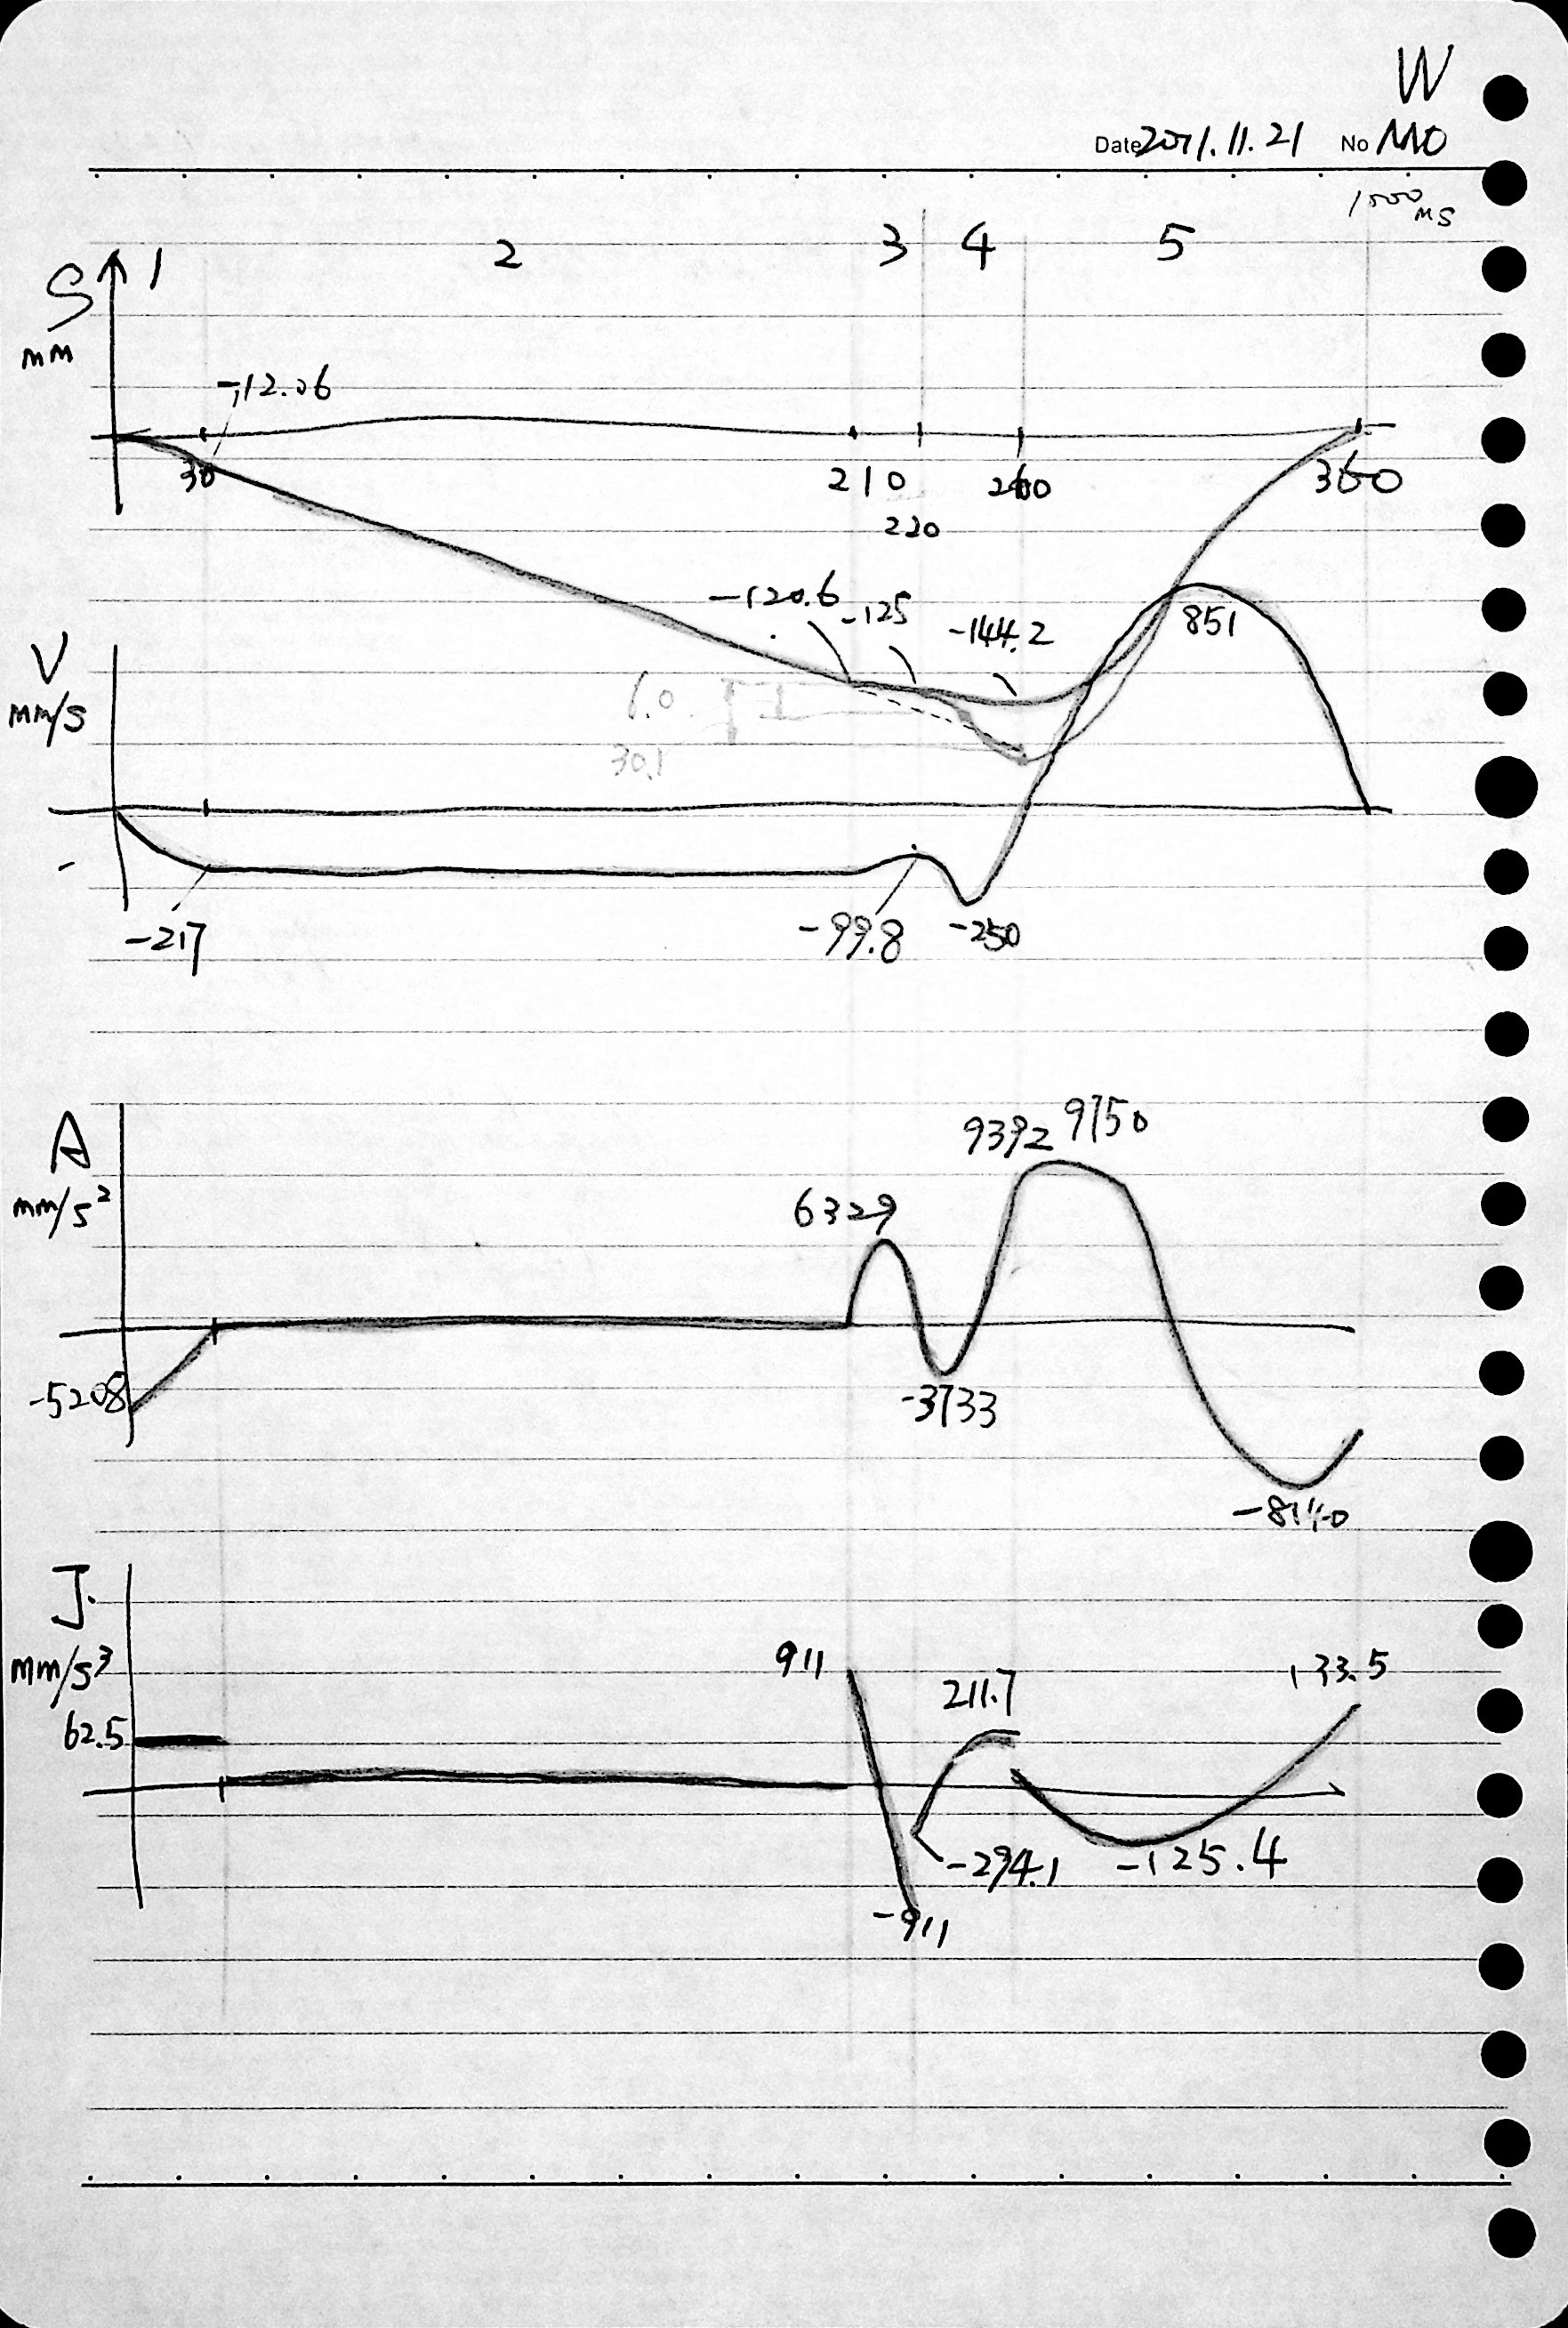 W
Date 2011.11.21 No MO
1000 ms
1 2 3 4 5
S
mm
-12.06
30 210 260 360
220
-120.6 -125 -144.2
V
mm/s
851
6.0
30.1
-
-217 -99.8 -250
A
mm/s²
9392 9750
6329
-5208
-3733
-8140
J.
mm/s³
911 211.7 133.5
62.5
-294.1 -125.4
-911